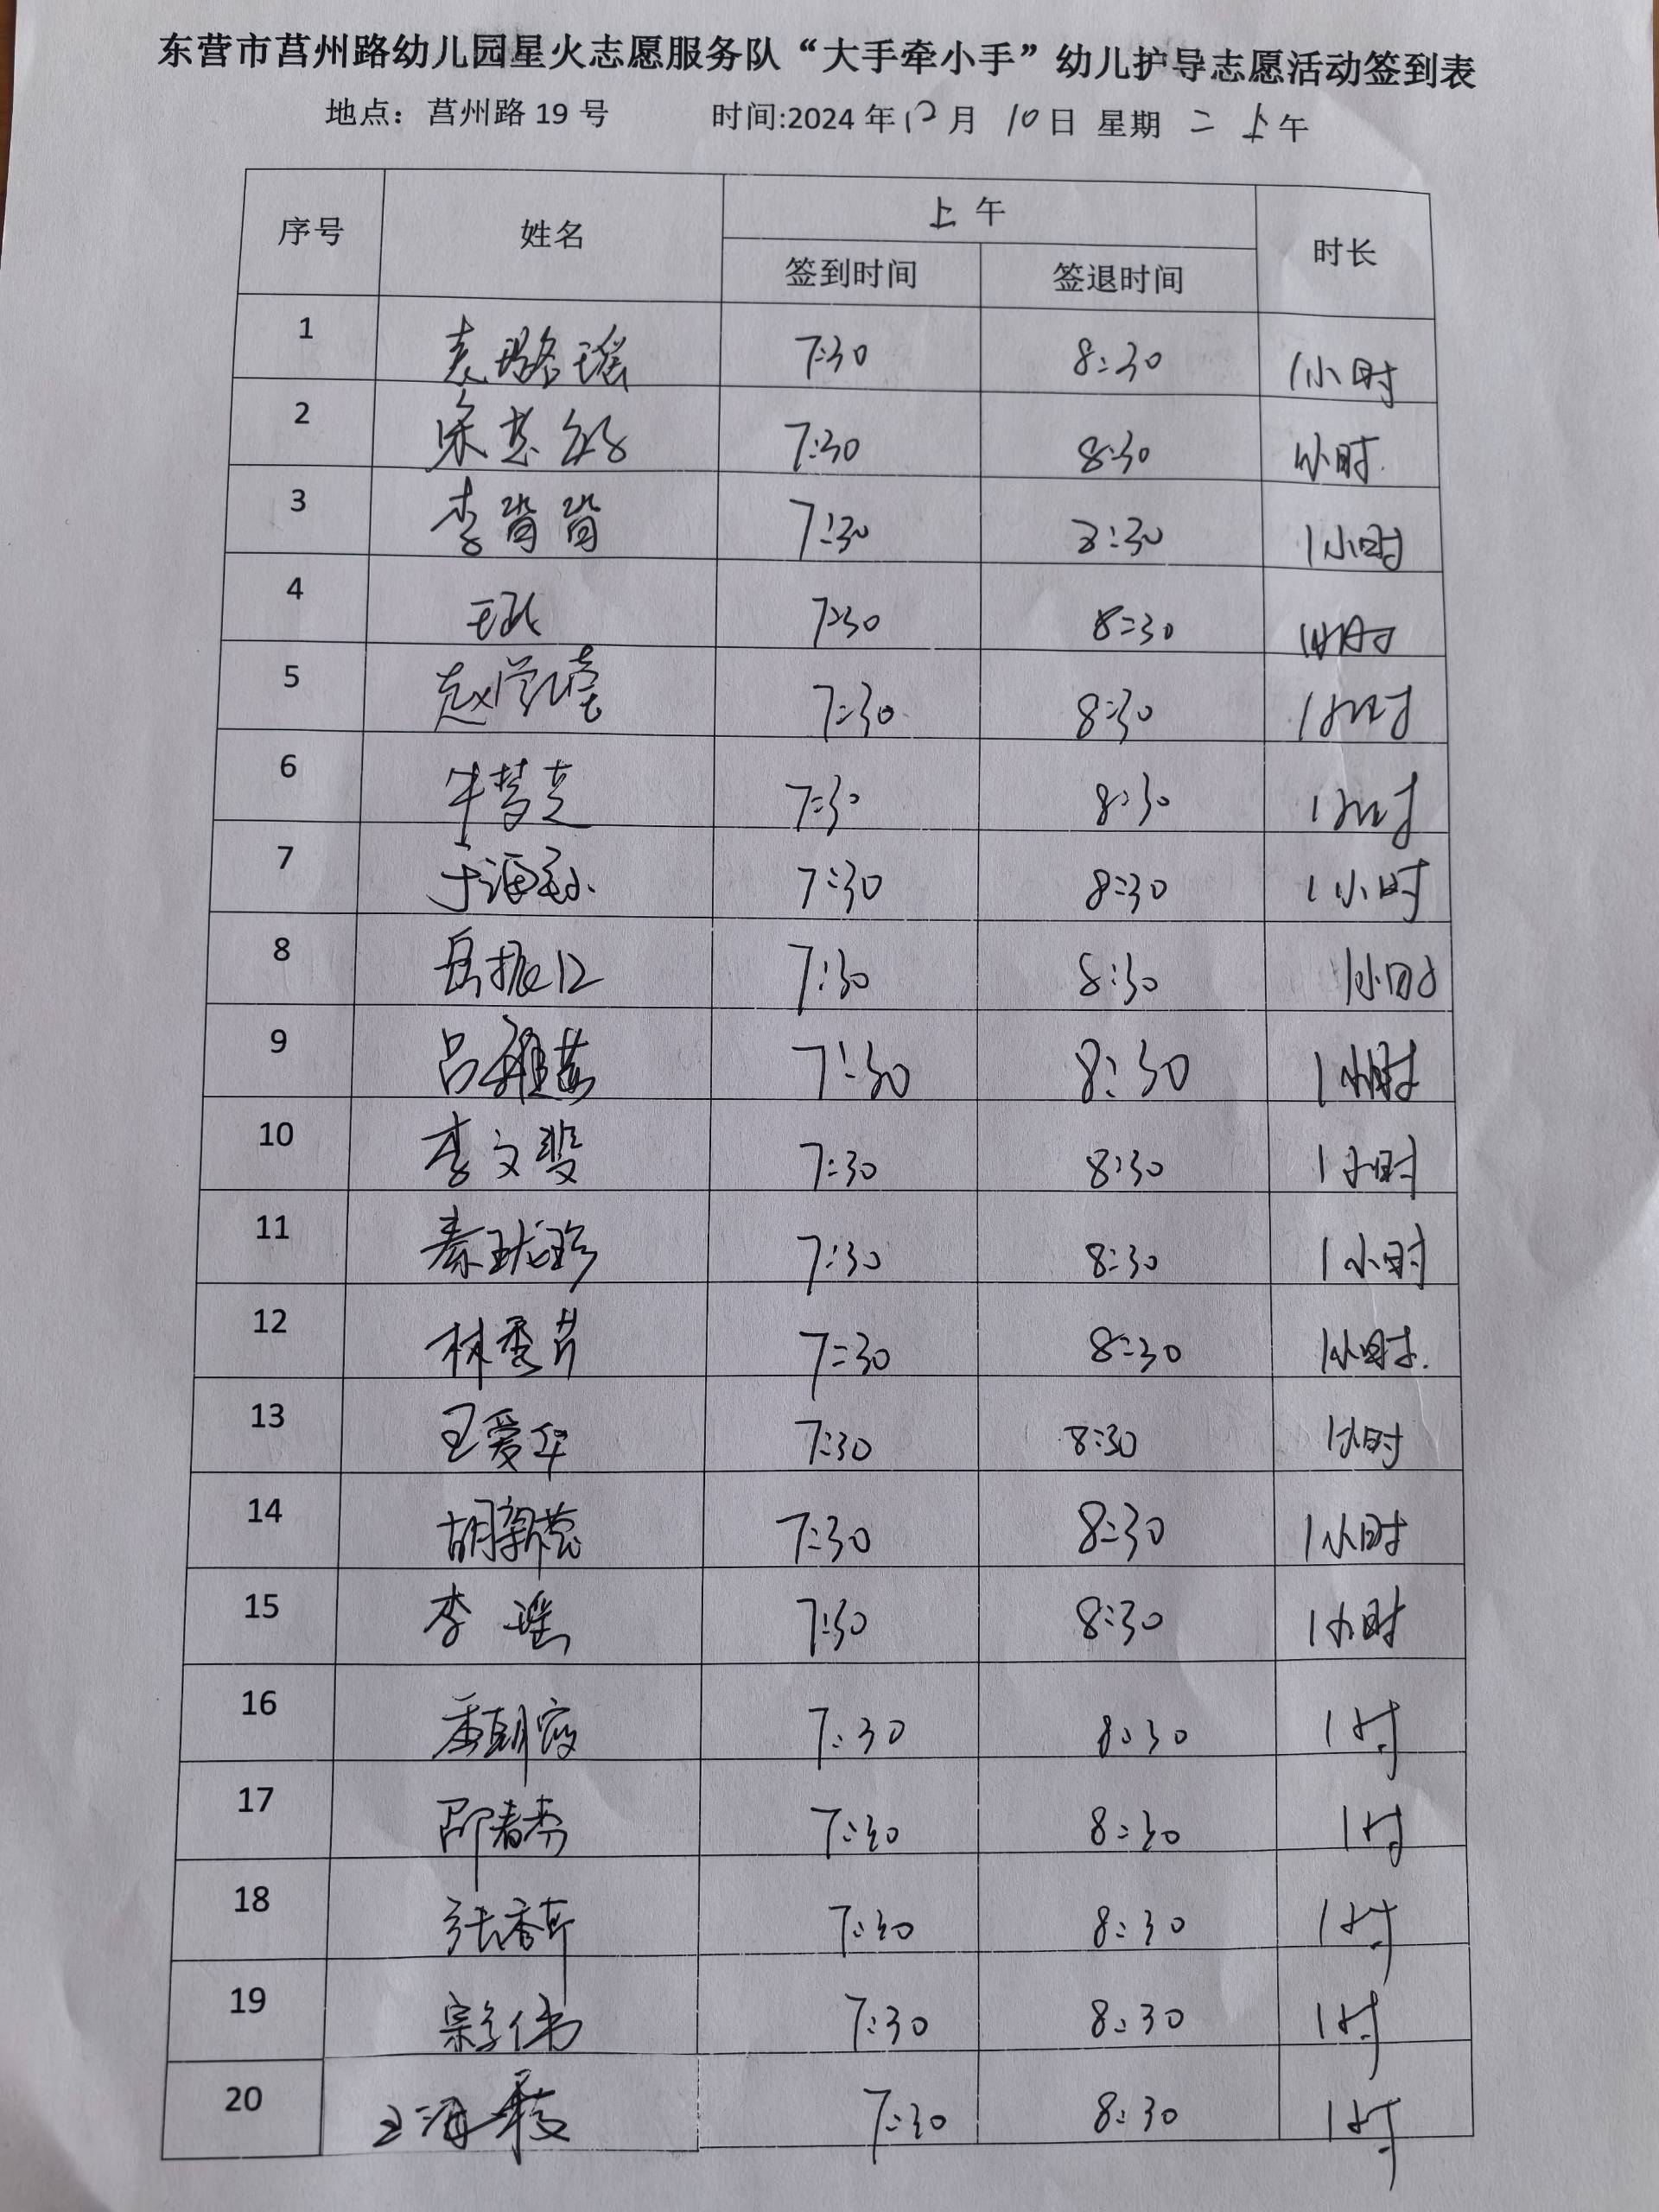 东营市莒州路幼儿园星火志愿服务队“大手牵小手”幼儿护导志愿活动签到表
地点：莒州路 19 号 时间:2024 年 12 月 10 日 星期 二 上午
序号 姓名 上午 时长
签到时间 签退时间
1 袁璐瑶 7:30 8:30 1小时
2 7:30 8:30 1小时
3 李肖肖 7:30 8:30 1小时
4 7:30 8:30 1小时
5 赵学莹 7:30 8:30 1小时
6 牛梦芝 7:30 8:30 1小时
7 于 7:30 8:30 1小时
8 岳振江 7:30 8:30 1小时
9 吕雅茹 7:30 8:30 1小时
10 李文斐 7:30 8:30 1小时
11 秦珑珍 7:30 8:30 1小时
12 林秀芹 7:30 8:30 1小时
13 王爱华 7:30 8:30 1小时
14 胡新苓 7:30 8:30 1小时
15 李瑶 7:30 8:30 1小时
16 7:30 8:30 1时
17 邵春秀 7:30 8:30 1时
18 张香芹 7:30 8:30 1时
19 宗学伟 7:30 8:30 1时
20 王海霞 7:30 8:30 1时